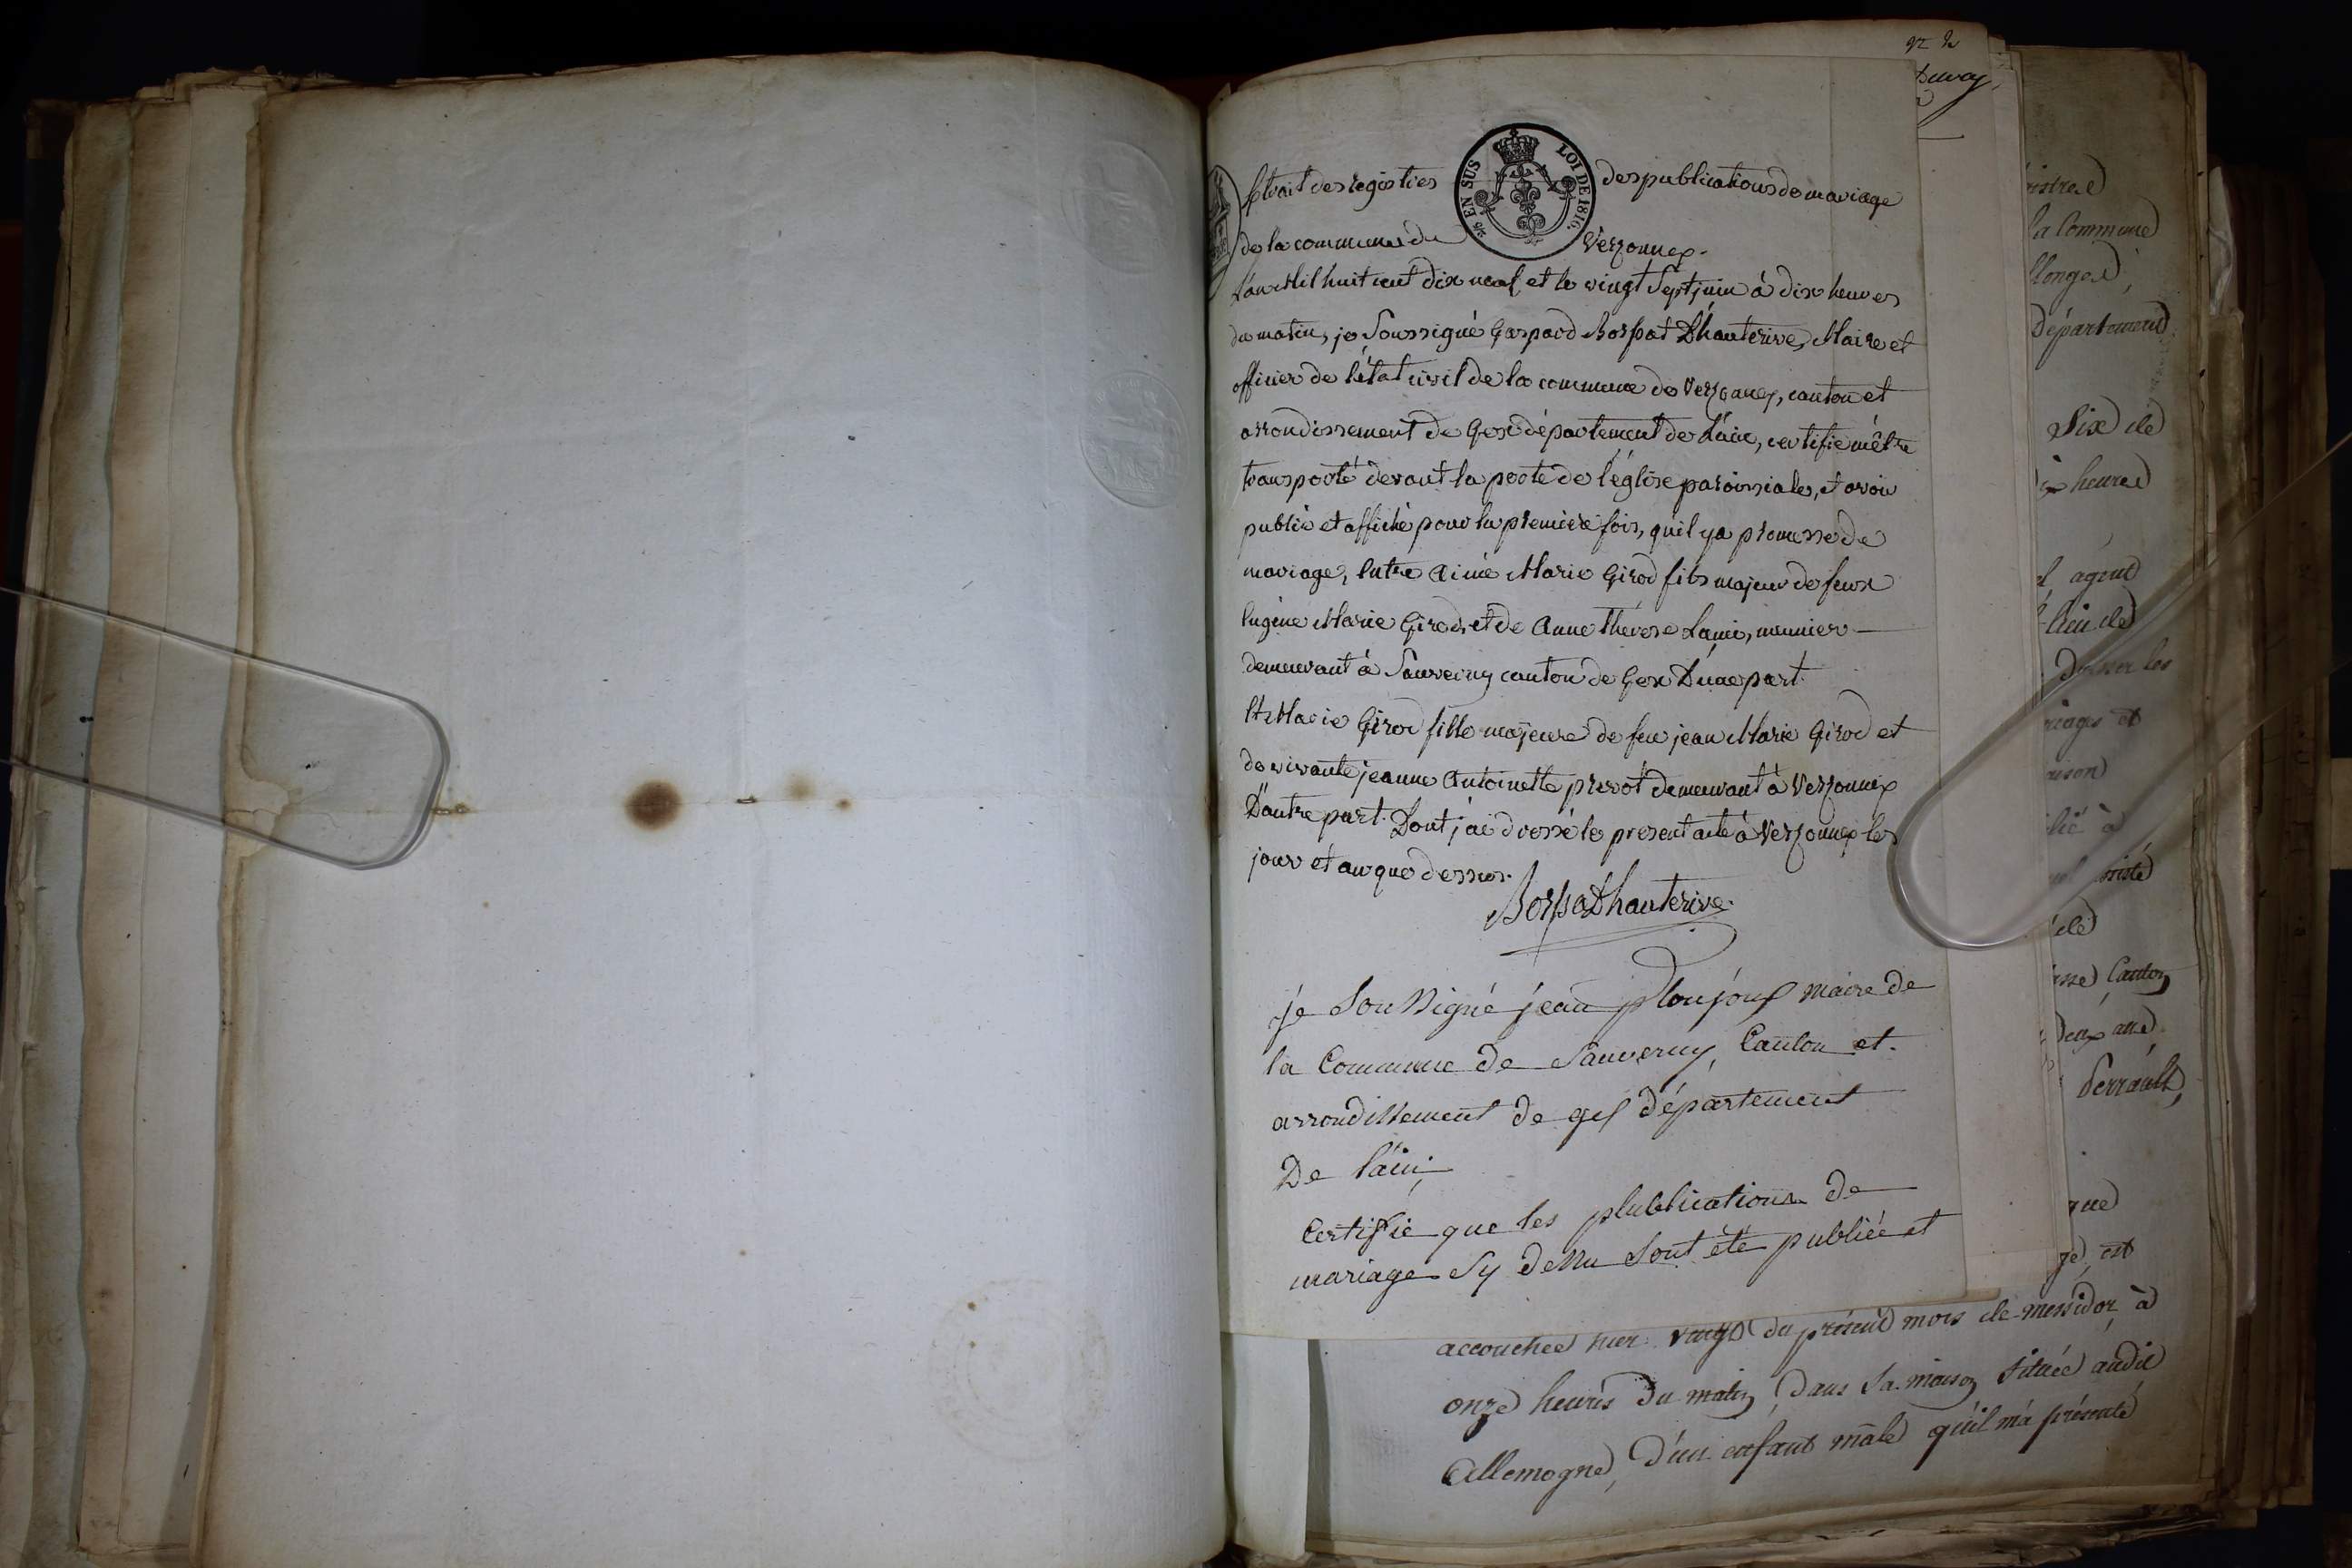 Extrait des registres des publications de mariage
de la commune de Verzonnex.
L'an Mil huit cent dix neuf et le vingt Sept juin à dix heures
du matin, je Soussigné Gaspard Borssat Dhauterive, Maire et
officier de l'état civil de la commune de Verzonnex, canton et
arrondissement de Gex département de L'ain, certifie mêtre
transporté devant la porte de l'église paroissiale, et avoir
publié et affiché pour la premiere fois, quil ya promesse de
mariage, Entre Aimé Marie Girod fils majeur de feux
Eugène Marie Girod, et de Anne Thérèse Lami, meunier
demeurant à Sauverny canton de Gex D'une part.
Et Marie Girod fille majeure de feu jean Marie Girod et
de vivante jeanne Antoinette prevot demeurant à Verzonnex
D'autre part. Dont j'ai dressé le present acte à Verzonnex les
jour et an que dessus.
Borssat Dhauterive.
je Soussigné jean ploujoux maire de
la Commune de Sauverny, Canton et
arrondissement de gex département
De l'ain;
Certifie que les plublications de
mariage Sy dessu Sont été publiée et
accouchée hier vingt du présent mois de messidor, à
onze heures du matin, dans sa maison située audit
Allemogne, d'un enfant mâle qu'il m'a présenté
26 EN SUS
LOI DE 1816.
la Commune
Département
Six de
heures
agent
lieu de
Donner les
Canton
Deux ans
Perrault,
est